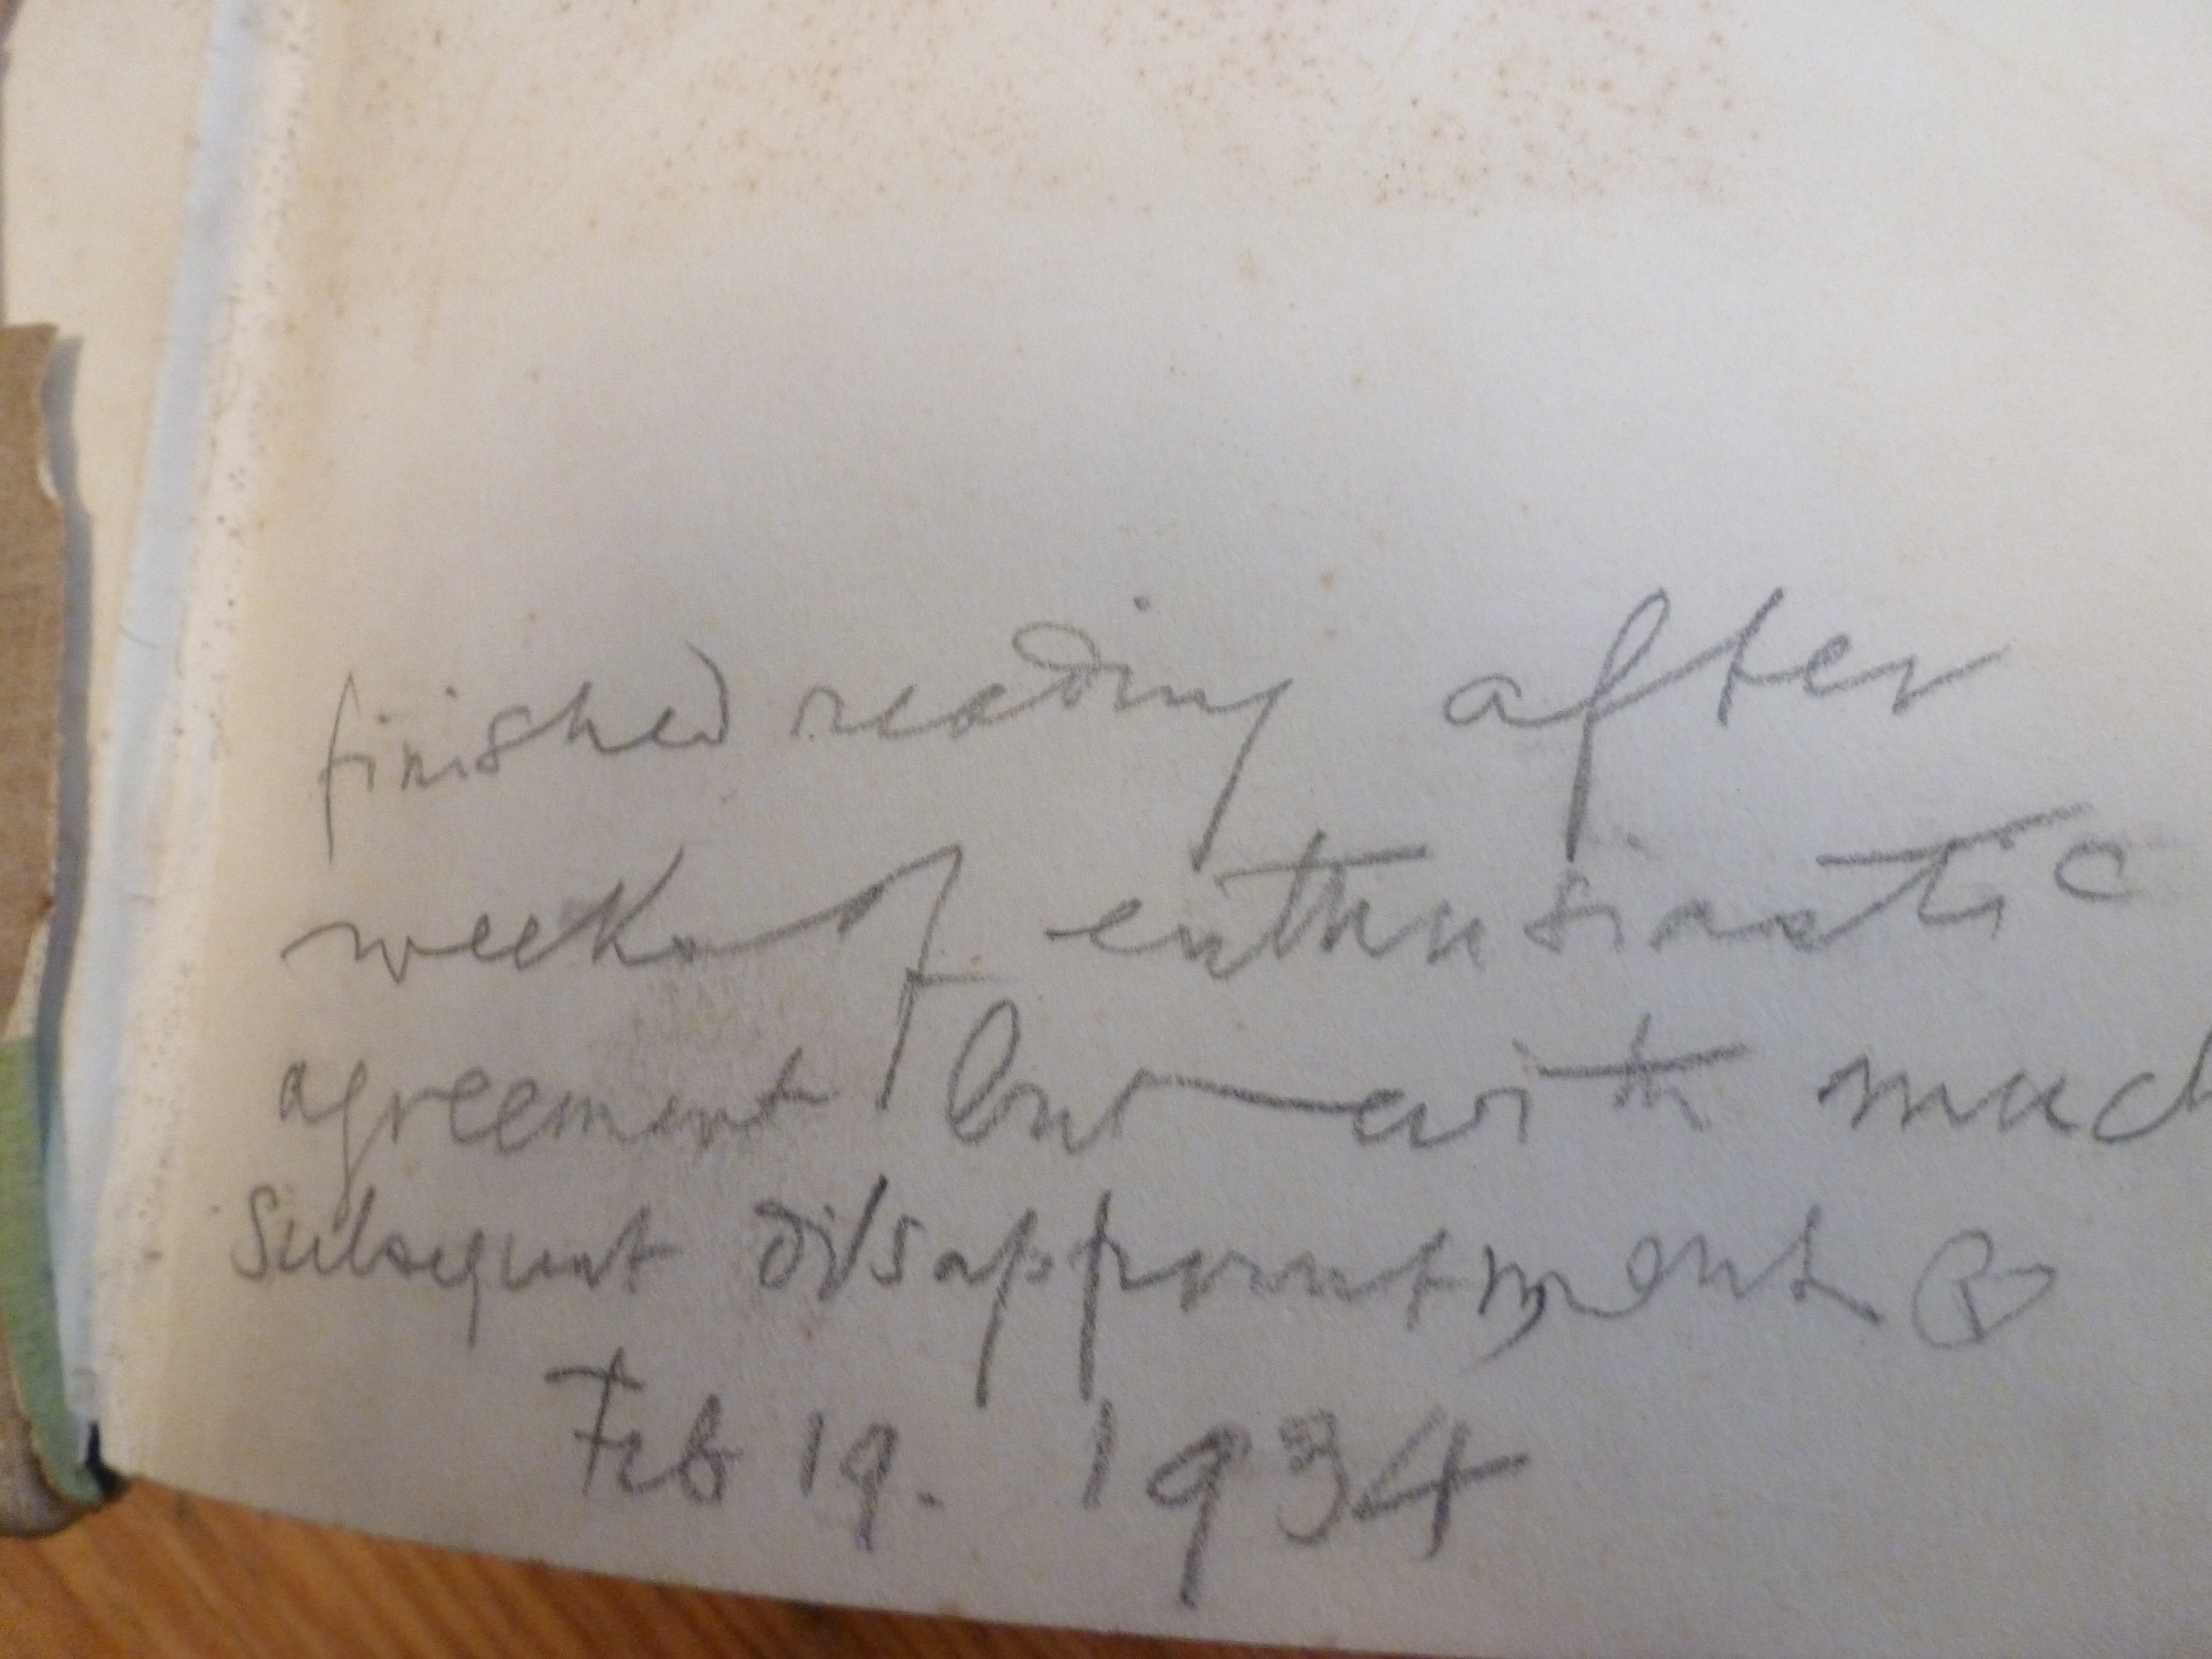 finished reading after
weeks of enthusiastic
agreement but with much
subsequent disappointment
Feb 19. 1934